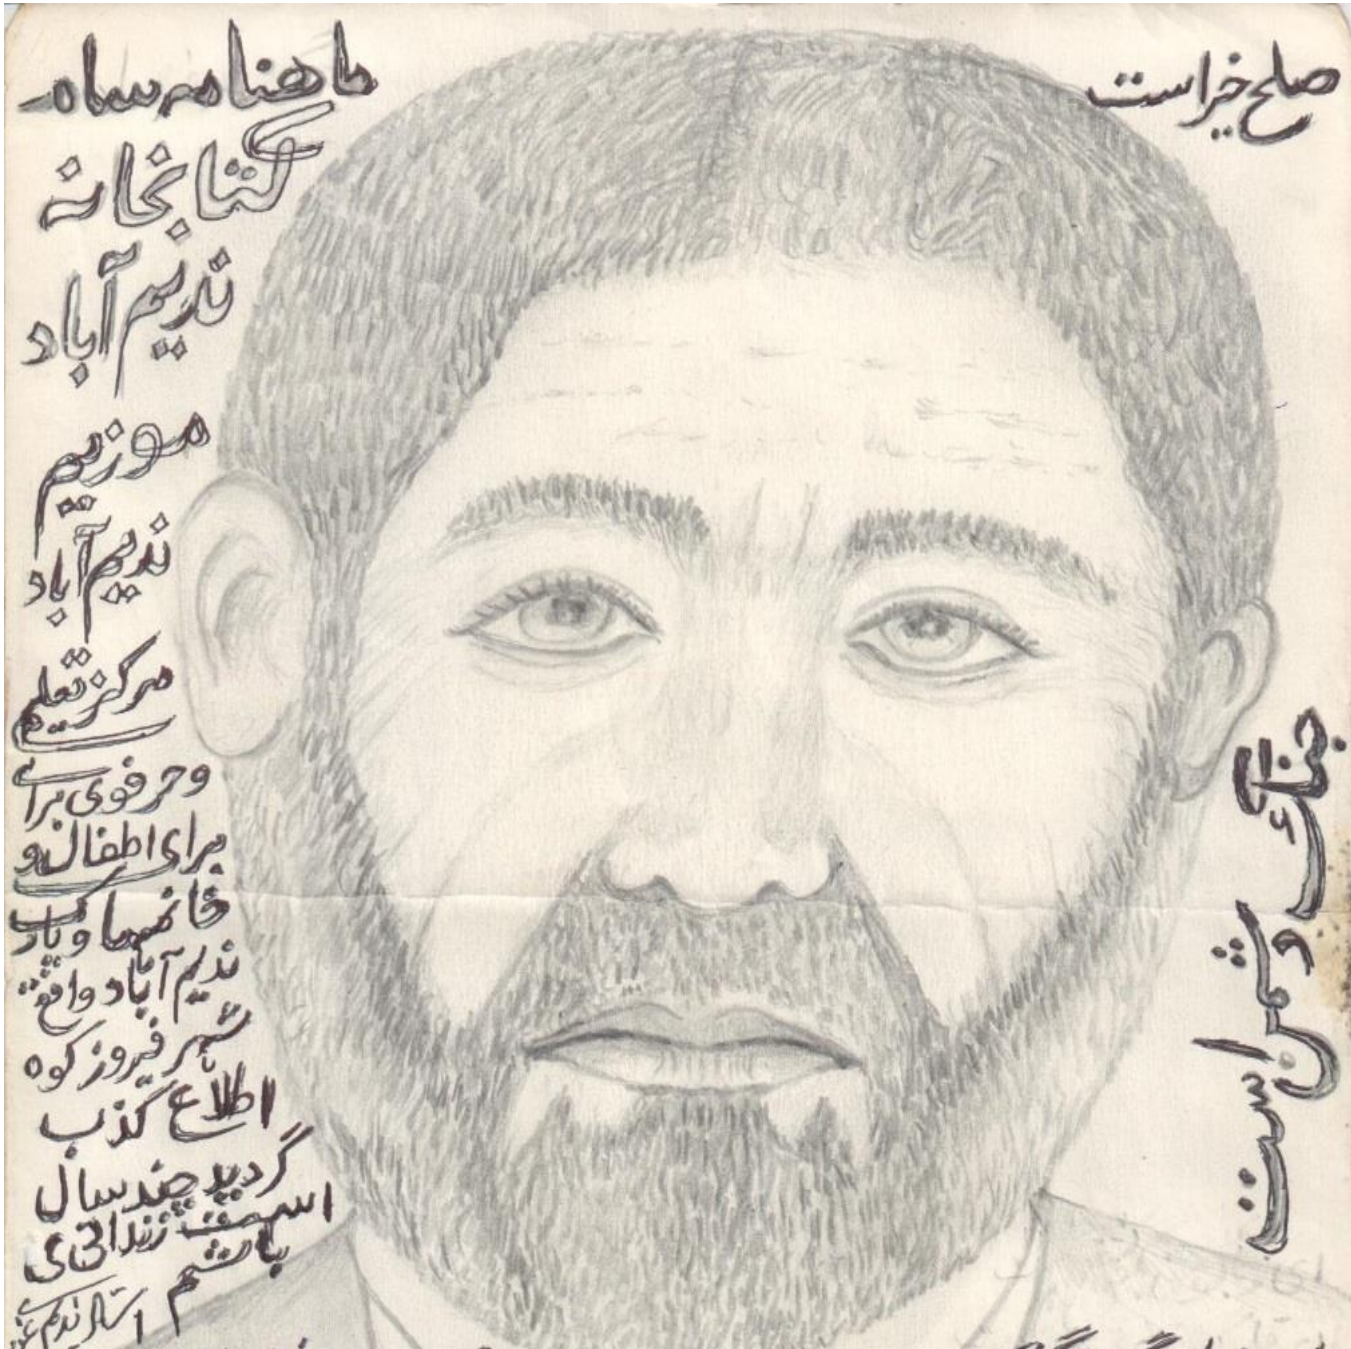 صلح خیر است
ماهنامه ساه
کتابخانه
ندیم آباد
موزیم
ندیم آباد
مرکز تعلیمی
و حرفوی برای
برای اطفال و
خانمها و پارک
ندیم آباد واقع
شهر فیروز کوه
اطلاع کذب
گردید چند سال
است زندانی
باشم
استاد ندیم
جنگ
است